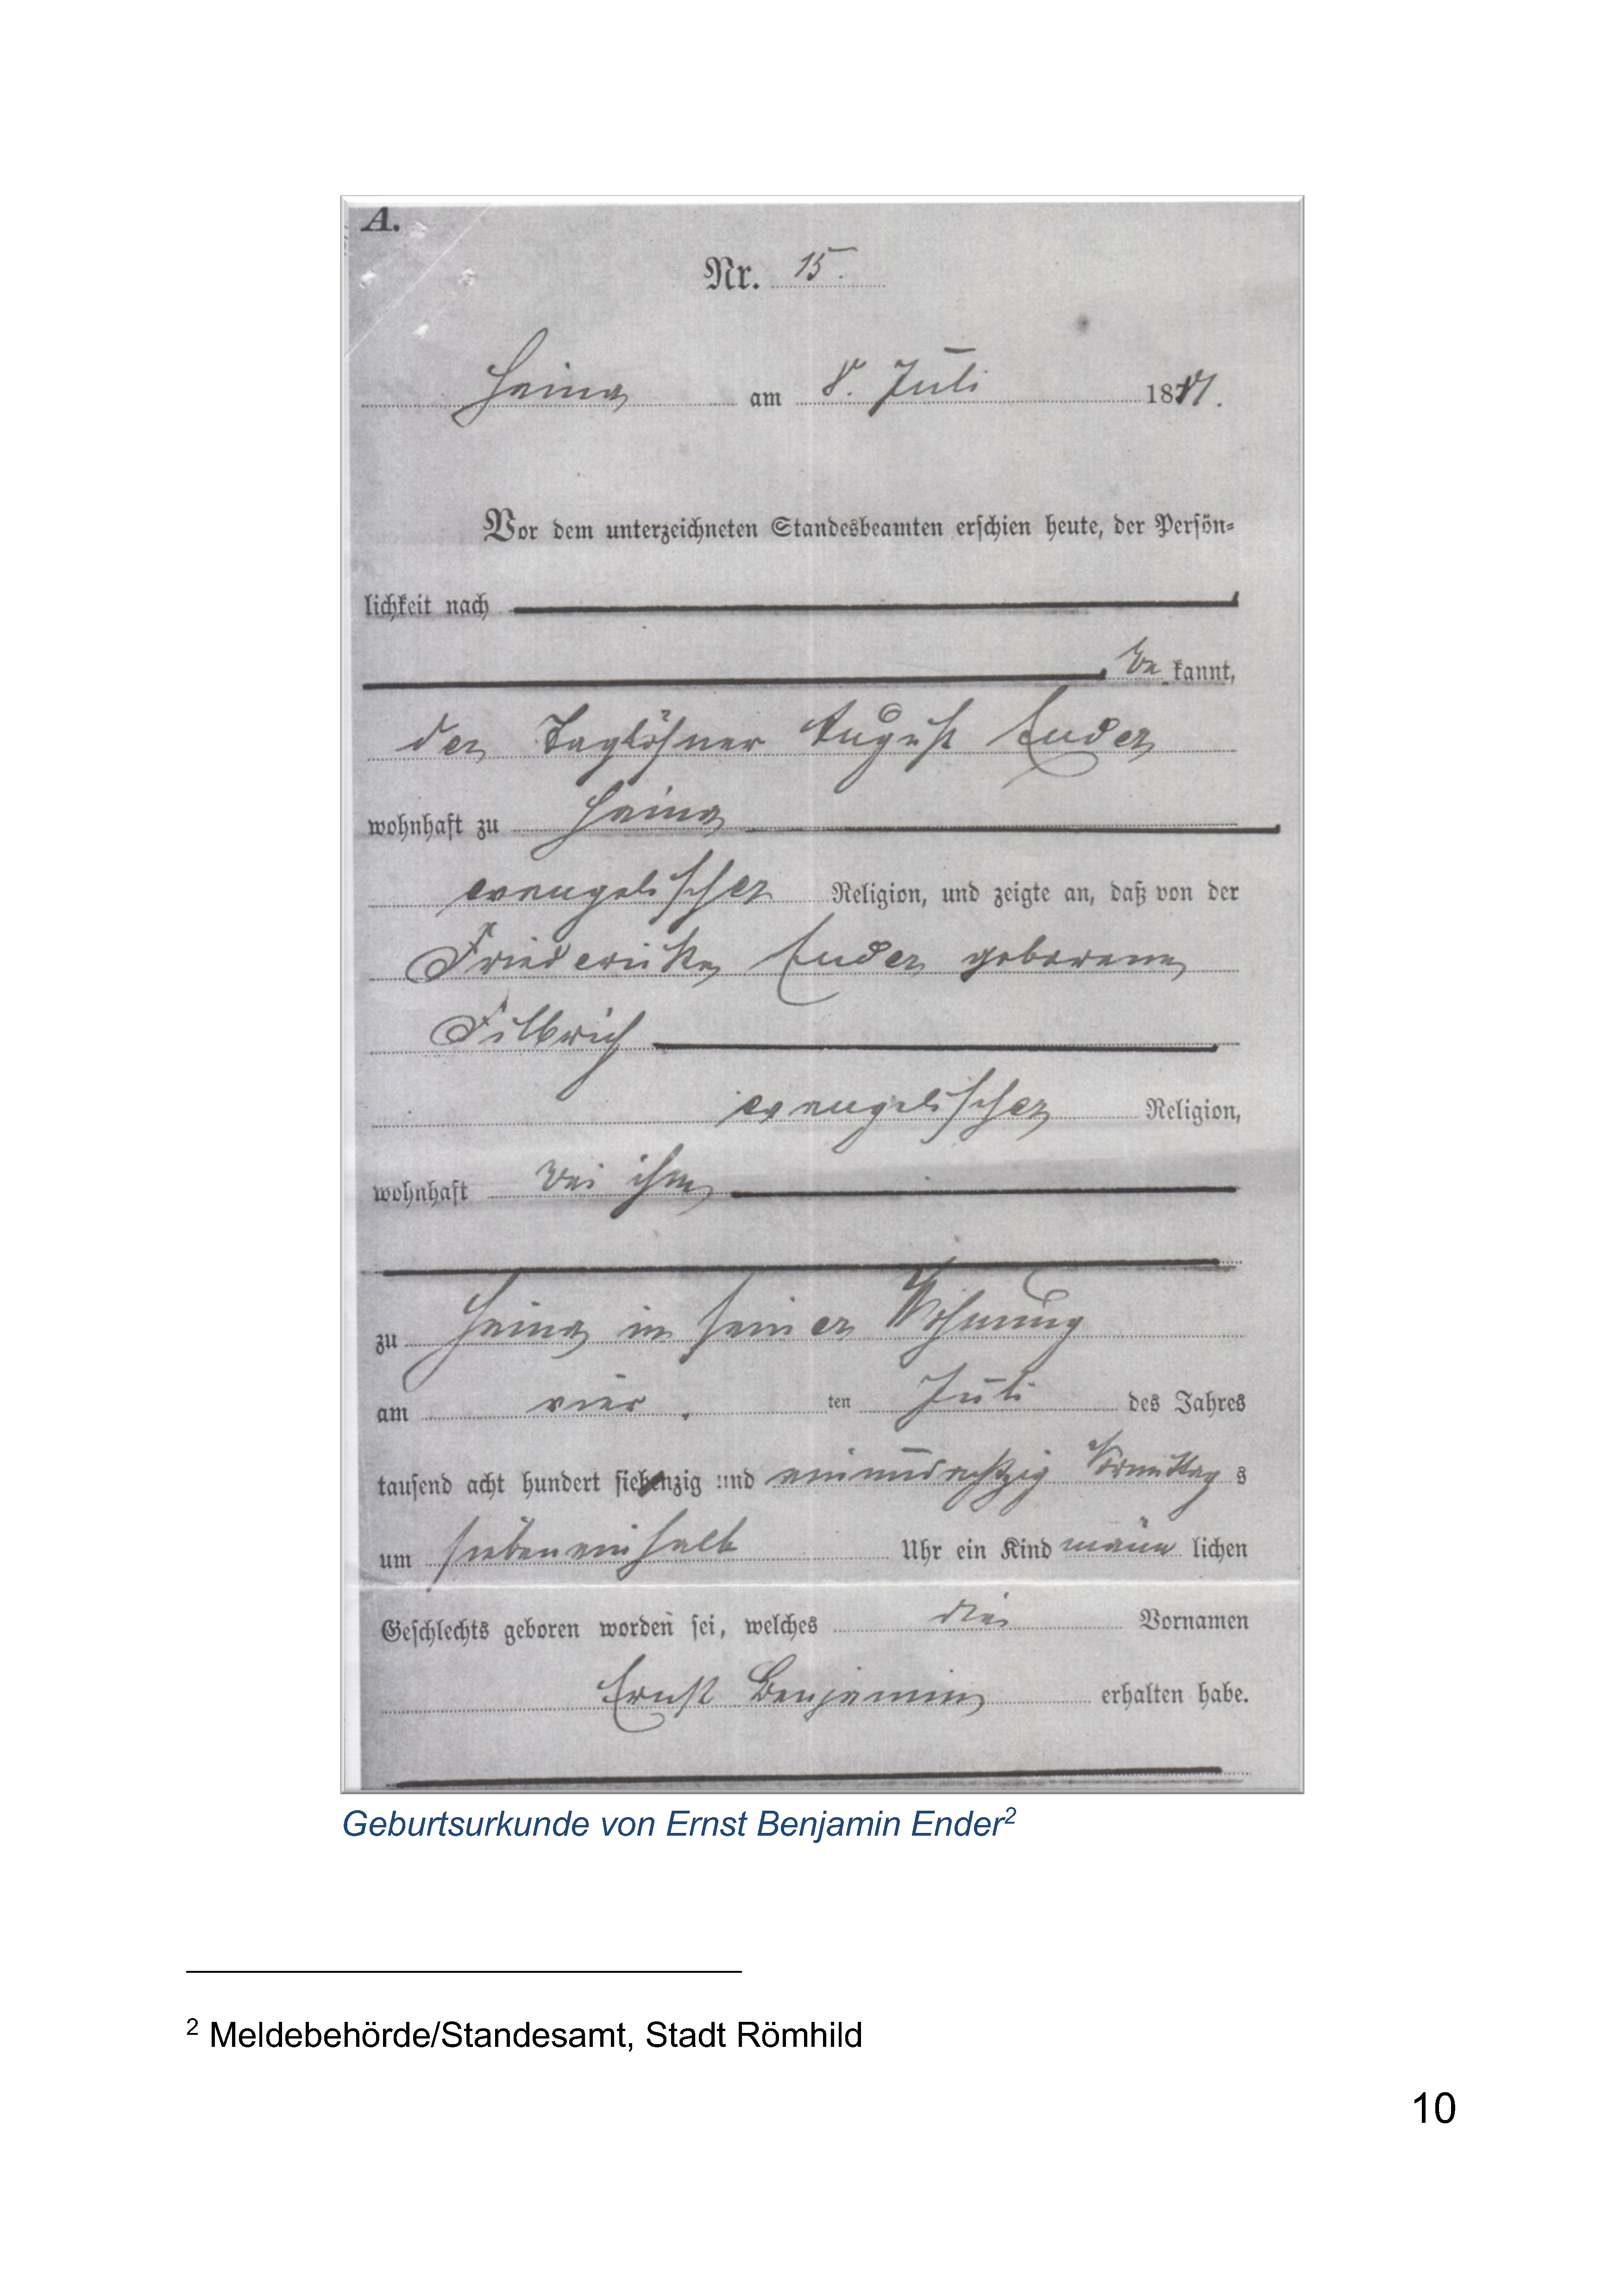 A.
Nr. 15.
Haina am 8. Juli 1881.
Vor dem unterzeichneten Standesbeamten erschien heute, der Persön=
lichkeit nach
be kannt,
der Taglöhner August Ender
wohnhaft zu Haina
evangelischer Religion, und zeigte an, daß von der
Friedericke Ender geborene
Filbrich
evangelischer Religion,
wohnhaft bei ihm
zu Haina in seiner Wohnung
am vier ten Juli des Jahres
tausend acht hundert siebenzig und einundachtzig Vormittag s
um sieben einhalb Uhr ein Kind männ lichen
Geschlechts geboren worden sei, welches die Vornamen
Ernst Benjamin erhalten habe.
Geburtsurkunde von Ernst Benjamin Ender²
² Meldebehörde/Standesamt, Stadt Römhild
10